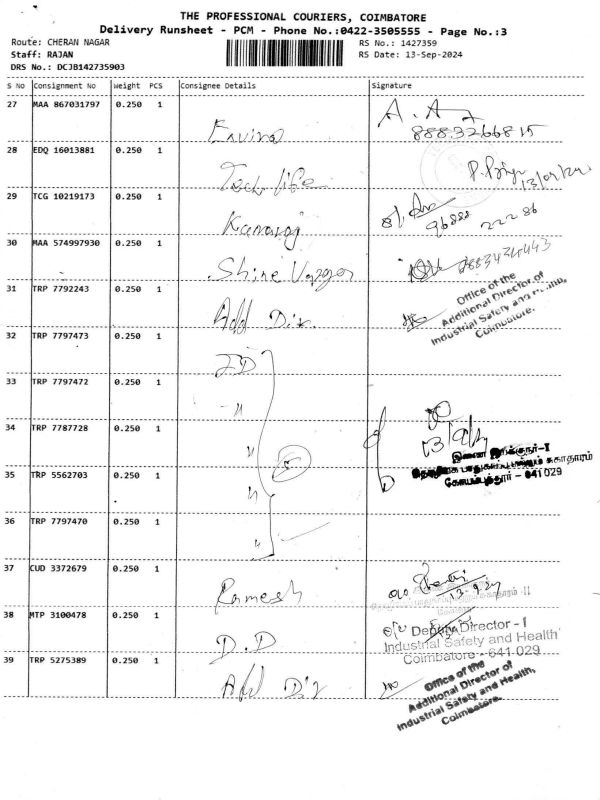 THE PROFESSIONAL COURIERS, COIMBATORE
Delivery Runsheet - PCM - Phone No.:0422-3505555 - Page No.:3
Route: CHERAN NAGAR RS No.: 1427359
Staff: RAJAN RS Date: 13-Sep-2024
DRS No.: DCJB142735903
S No Consignment No Weight PCS Consignee Details Signature
27 MAA 867031797 0.250 1
Enviro
8883266815
28 EDQ 16013881 0.250 1
Tech life
29 TCG 10219173 0.250 1
Kanaraj
96888 22286
30 MAA 574997930 0.250 1
Shine
31 TRP 7792243 0.250 1
Add Dir.
Office of the
Additional Director of
Industrial Safety and Health,
Coimbatore.
32 TRP 7797473 0.250 1
JD
33 TRP 7797472 0.250 1
"
34 TRP 7787728 0.250 1
"
இணை இயக்குநர்-I
கோயம்புத்தூர் - 641 029
35 TRP 5562703 0.250 1
"
5
36 TRP 7797470 0.250 1
"
37 CUD 3372679 0.250 1
Ramesh
38 MTP 3100478 0.250 1
D.D
Deputy Director - I
Industrial Safety and Health
Coimbatore - 641 029
39 TRP 5275389 0.250 1
Add Dir
Office of the
Additional Director of
Industrial Safety and Health,
Coimbatore.